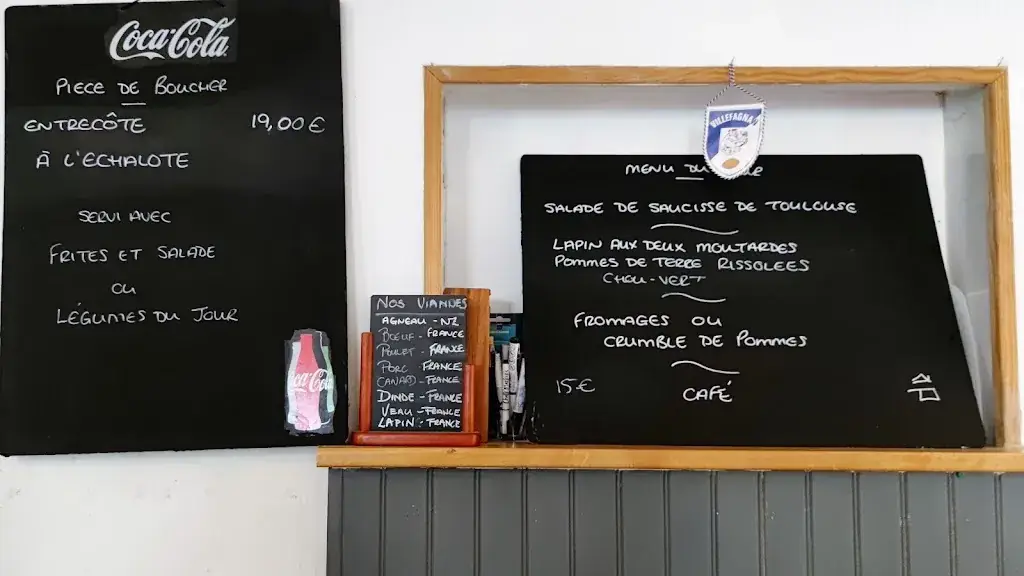 Coca-Cola
PIECE DE BOUCHER
ENTRECÔTE 19,00 €
À L'ECHALOTE
SERVI AVEC
FRITES ET SALADE
OU
LÉGUMES DU JOUR
Coca-Cola
NOS VIANDES
AGNEAU - NZ
BOEUF - FRANCE
POULET - FRANCE
PORC FRANCE
CANARD - FRANCE
DINDE - FRANCE
VEAU - FRANCE
LAPIN - FRANCE
VILLEFAGNAN
MENU DU
SALADE DE SAUCISSE DE TOULOUSE
LAPIN AUX DEUX MOUTARDES
POMMES DE TERRE RISSOLEES
CHOU-VERT
FROMAGES OU
CRUMBLE DE POMMES
15€ CAFÉ